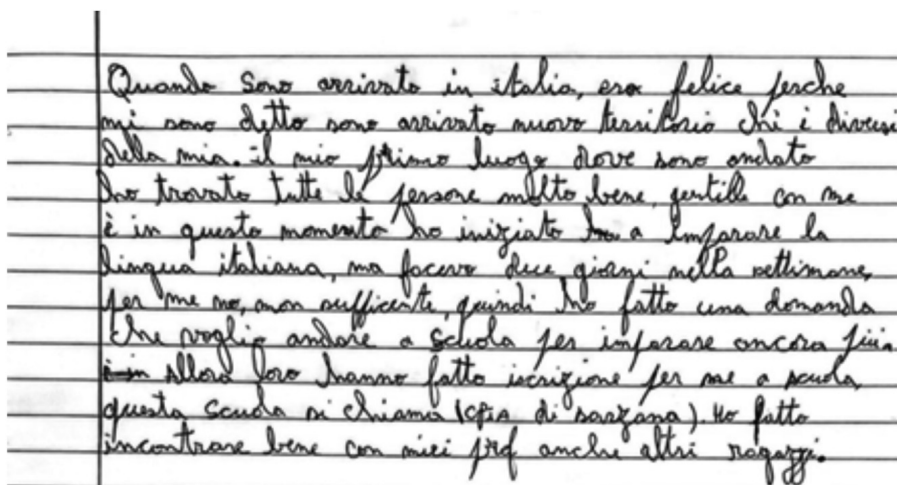 Quando sono arrivato in italia, ero felice perche
mi sono detto sono arrivato nuovo territorio chi è diversi
della mia. il mio primo luogo dove sono andato
ho trovato tutte le persone molto bene, gentille con me
è in questo momento ho iniziato a imparare la
lingua italiana, ma facevo duce giorni nella settimane,
per me no, non sufficente, quindi ho fatto una domanda
che voglio andare a scuola per imparare ancora
Allora loro hanno fatto iscrizione per me a scuola,
questa scuola si chiama (cpia di sarzana). Ho fatto
incontrare bene con miei prof anche altri ragazzi.